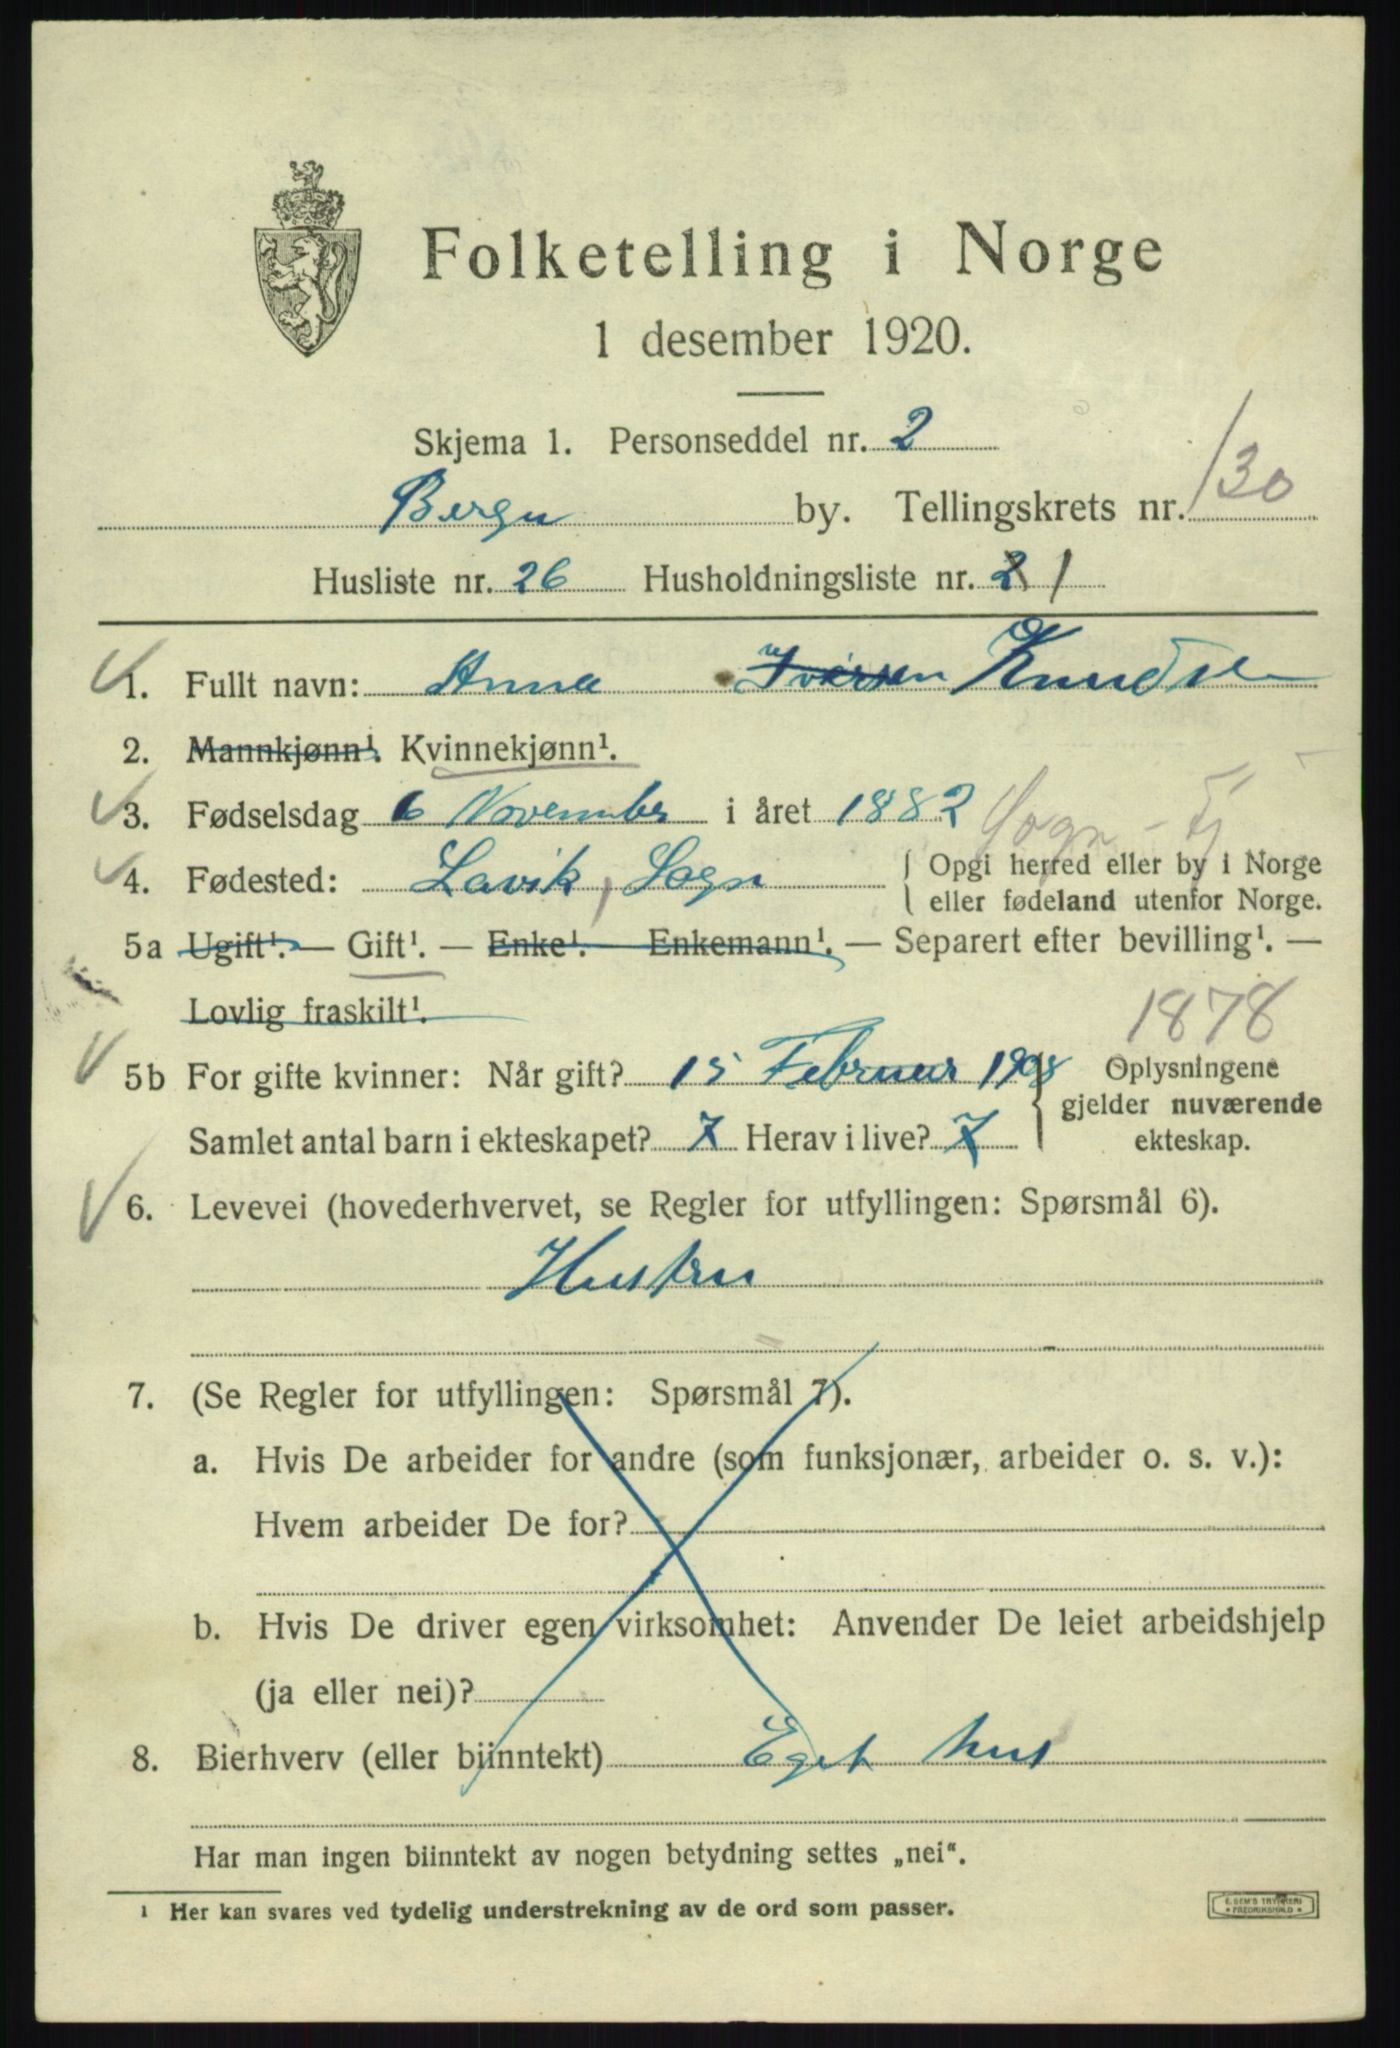 Folketelling i Norge
1 desember 1920.
Skjema 1. Personseddel nr. 2
Bergen by. Tellingskrets nr. 130
Husliste nr. 26 Husholdningsliste nr. 2 1
1. Fullt navn: Anna Iversen Knudsen
2. Mannkjønn¹. Kvinnekjønn¹.
3. Fødselsdag 6 November i året 1882 Sogn - Fj
4. Fødested: Lavik, Sogn { Opgi herred eller by i Norge
eller fødeland utenfor Norge.
5a Ugift¹. — Gift¹. — Enke¹. — Enkemann¹. — Separert efter bevilling¹. —
Lovlig fraskilt¹.
1878
5b For gifte kvinner: Når gift? 15 Februar 1908 } Oplysningene
gjelder nuværende
Samlet antal barn i ekteskapet? 7 Herav i live? 7
ekteskap.
6. Levevei (hovederhvervet, se Regler for utfyllingen: Spørsmål 6).
Hustru
7. (Se Regler for utfyllingen: Spørsmål 7).
a. Hvis De arbeider for andre (som funksjonær, arbeider o. s. v.):
Hvem arbeider De for?
b. Hvis De driver egen virksomhet: Anvender De leiet arbeidshjelp
(ja eller nei)?
8. Bierhverv (eller biinntekt) Eget hus
Har man ingen biinntekt av nogen betydning settes „nei“.
¹ Her kan svares ved tydelig understrekning av de ord som passer.
E. SEM'S TRYKKERI
FREDRIKSHALD